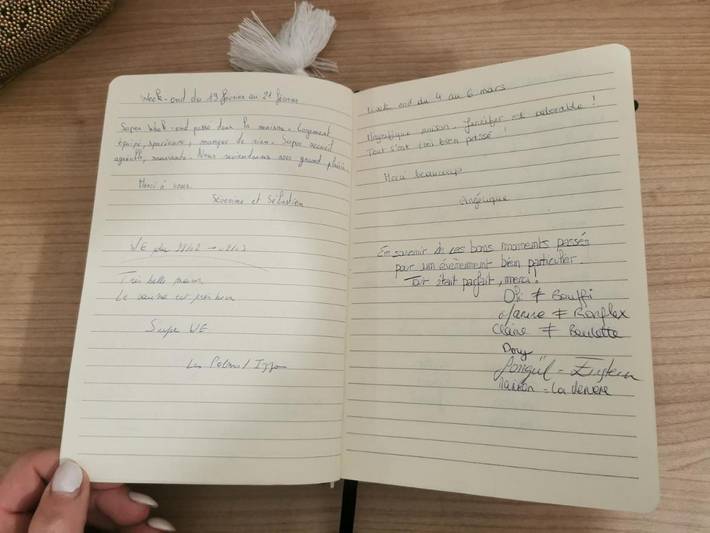 Week-end du 19 février au 21 février
Super Week-end passé dans la maison. Logement
équipé, spacieux, manque de rien. Super accueil
agréable, souriante. Nous reviendrons avec grand plaisir.
Merci à vous.
Séverine et Sébastien
WE du
Très belle maison
Le sauna est très bien
Super WE
Les
Week end du 4 au 6 mars
Magnifique maison, Jennifer est adorable !
Tout s'est très bien passé !
Merci beaucoup
Angélique
En souvenir de ces bons moments passés
pour un évènement bien particulier.
Tout était parfait, merci !
≠ Bouffi
≠ Ronflex
Claire ≠ Boulotte
Dory
maison - La